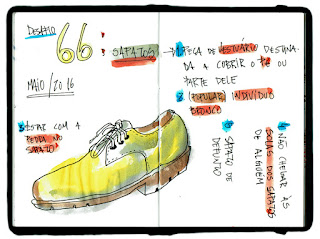 DESAFIO 66: SAPATOS → 1. PEÇA DE VESTUÁRIO DESTINA-
DA A COBRIR O PÉ OU
PARTE DELE
MAIO/2016
2. (POPULAR) INDIVÍDUO
BRONCO
3. ESTAR COM A
PEDRA NO
SAPATO
SAPATO DE
DEFUNTO
NÃO CHEGAR ÀS
SOLAS DOS SAPATOS
DE ALGUÉM